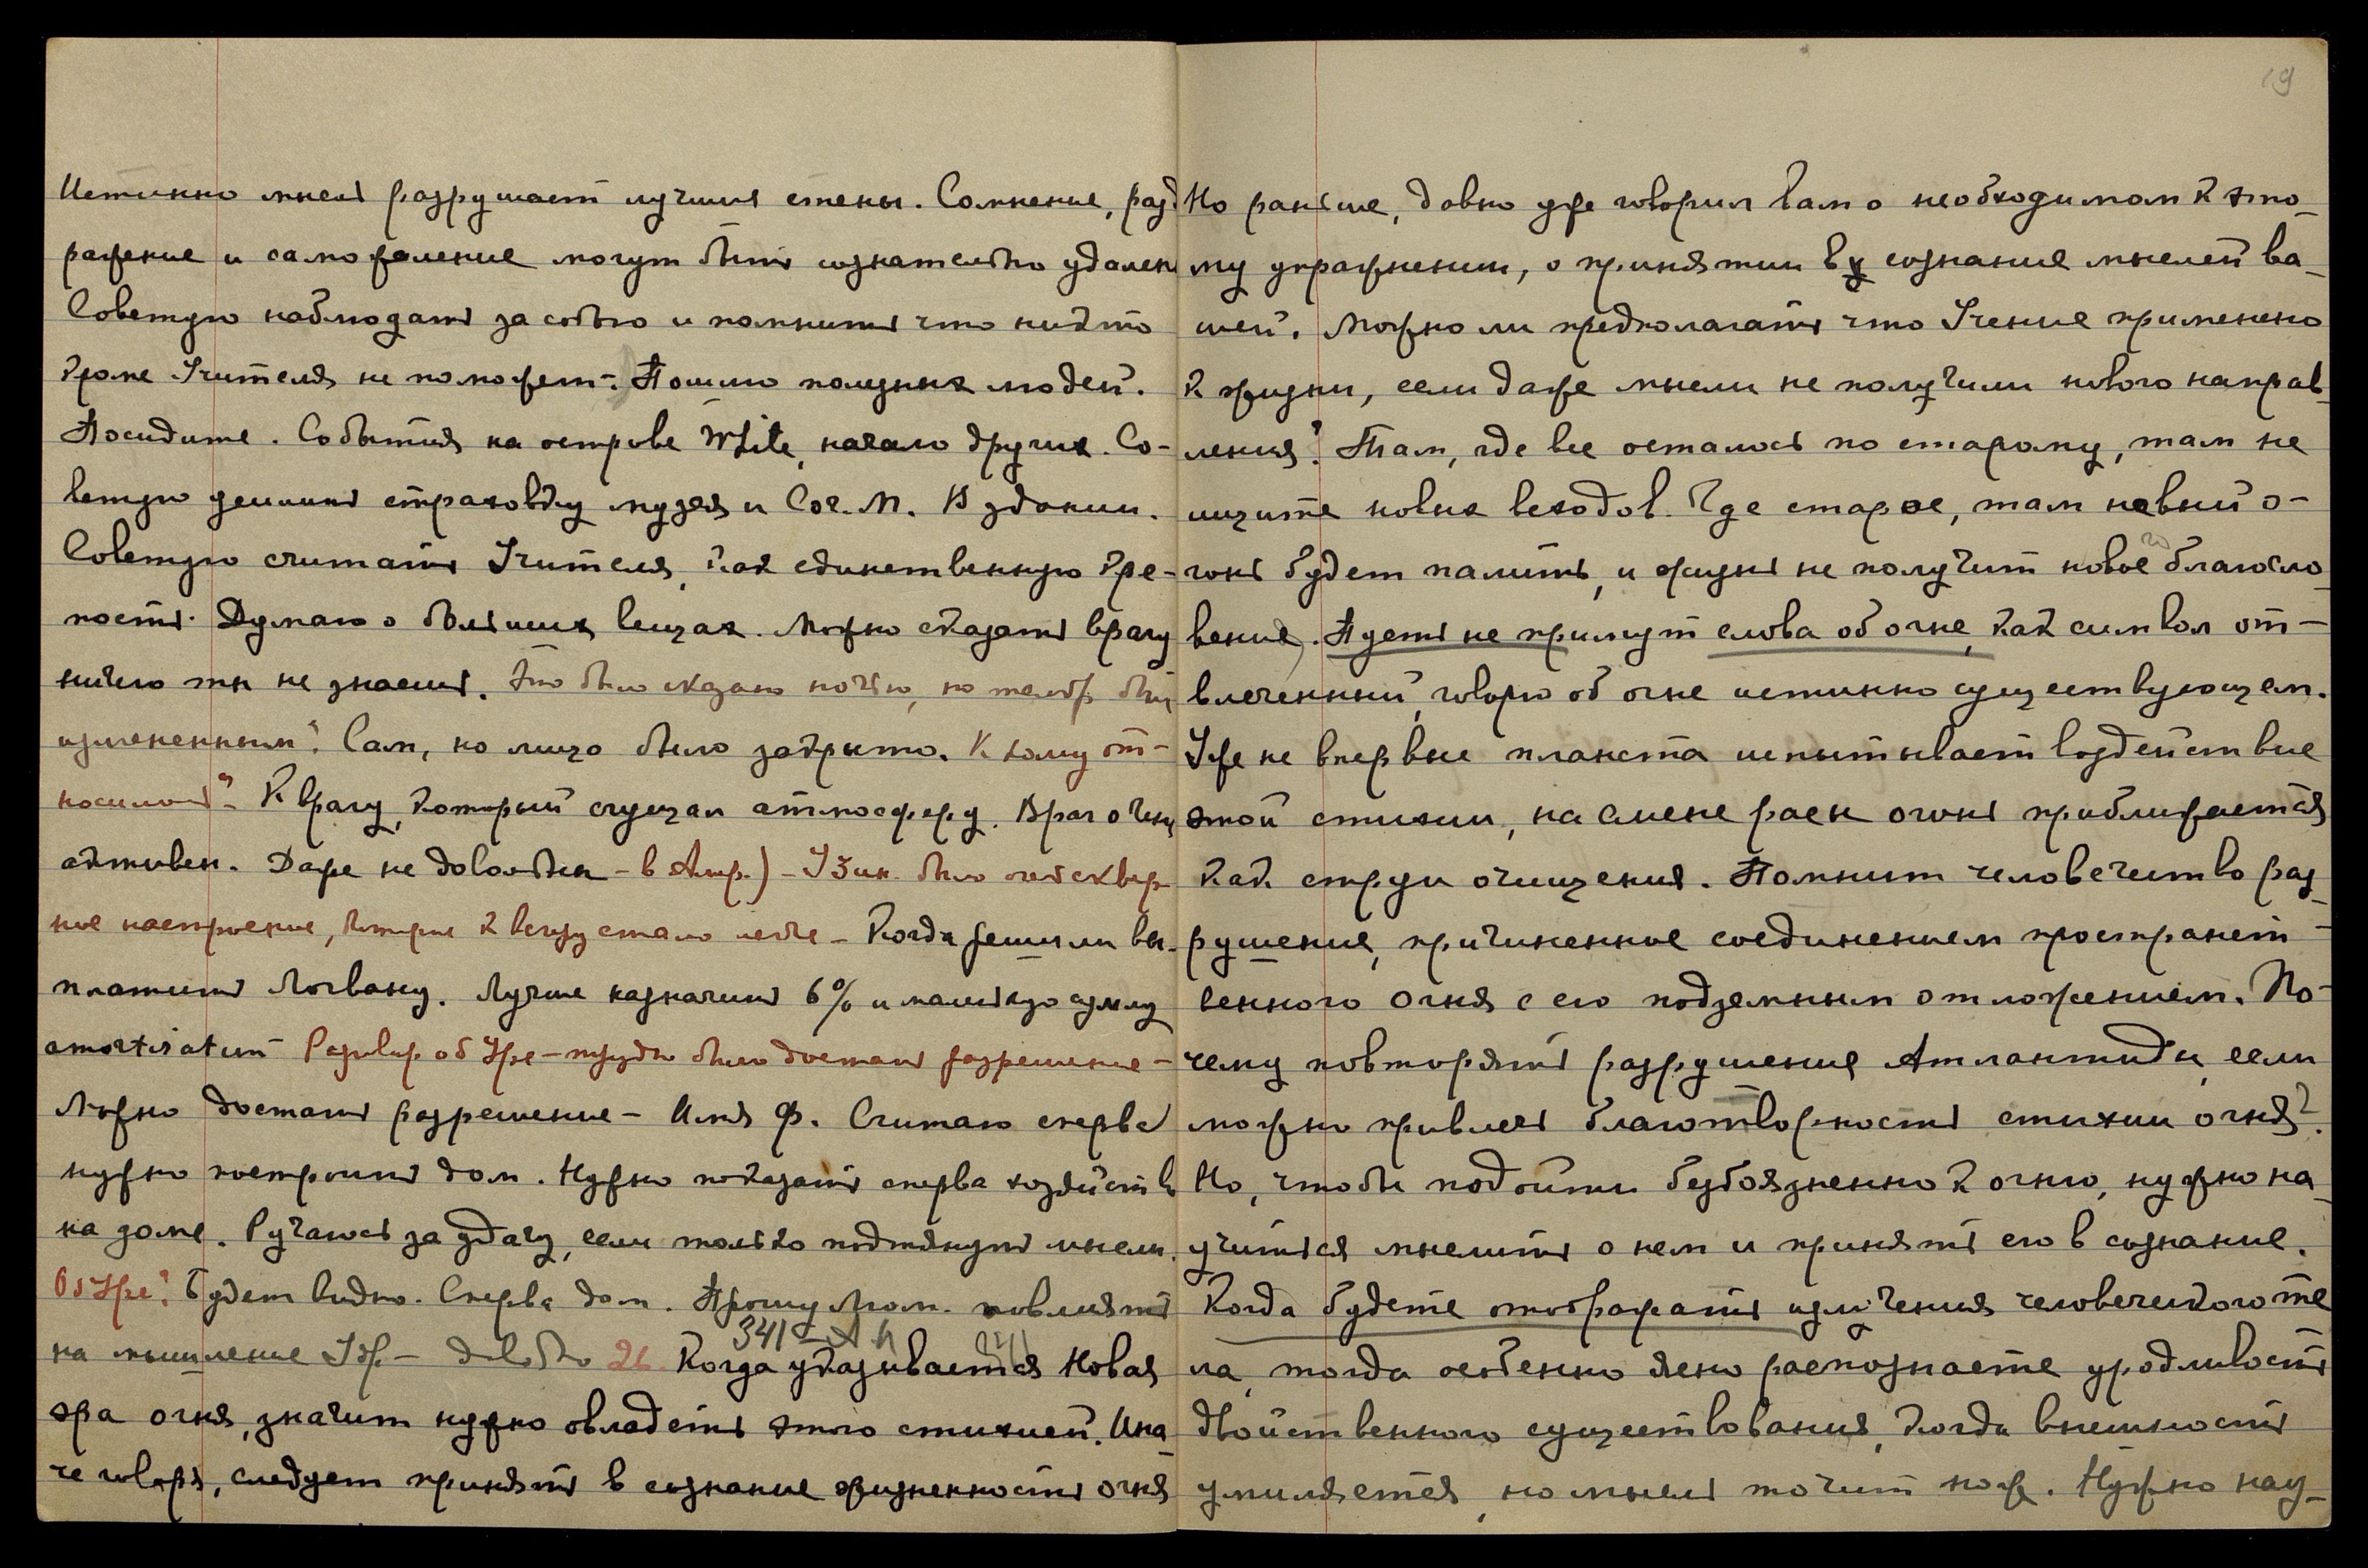 Истинно мысль разрушает лучшия стены. Сомнение, разд
ражение и саможаление могут быть сознательно удален
Советую наблюдать за собою и помнить что никто
кроме Учителя не поможет. Пошлю полезных людей.
Посидите. События на острове White, начало других. Со-
ветую усилить страховку музея и Соч. М. В здании.
Советую считать Учителя, как единственную кре-
пость. Думаю о больших вещах. Можно сказать врагу
ничего ты не знаешь. Это было сказано ночью, но тембр был
измененным? Сам, но лицо было закрыто. К кому от-
носилось? - К врагу, который сгущал атмосферу. Враг очень
активен. Даже не довольны - в Амр.) - было от сквер
ное настроение, которое к вечеру стало легче - Когда решили вы-
платить Логвану. Лучше назначить 6% и малень­кую сумму
Разговор об Уре - трудно было достать разрешение -
Можно достать разрешение - Имя Ф. Считаю сперва
нужно построить дом. Нужно показать сперва хозяйств
на доме. Ручаюсь за удачу, если только подтянуть мысли.
Об Уре? Будет видно. Сперва дом. Прошу повлиять
на мышление - довольно 26. Когда указывается Новая
341
эра огня, значит нужно овладеть этою стихией. Ина-
че говоря, следует принять в сознание жизненность огня
19
Но раньше, давно уже говорил вам о необходимом к это-
му упражнении, о принятии в сознание мыслей ва-
шей. Можно ли предполагать что Учение применено
к жизни, если даже мысли не получили нового направ-
ления? Там, где все осталось по старому, там не
ищите новых всходов. Где старое, там новый о-
гонь будет палить, и жизнь не получит новое благосло
вение). Пусть не примут слова об огне, как символ от-
влеченный, говорю об огне истинно существующем.
Уже не впервые планета испытывает воздействие
этой стихии, на смене рас огонь приближается
как струи очищения. Помнит человечество раз-
рушения, причиненное соединением пространст-
венного огня с его подземным отложением. По-
чему повторять разрушения Атлантиды, если
можно привлечь благотворность стихии огня?
Но, чтобы подойти безбоязненно к огню, нужно на-
учиться мыслить о нем и принять его в сознание.
Когда будете отображать излучения человеческого те
ла, тогда особенно ясно распознаете уродливость
двойственного существования, когда внешность
умиляется, но мысль точит нож. Нужно нау-